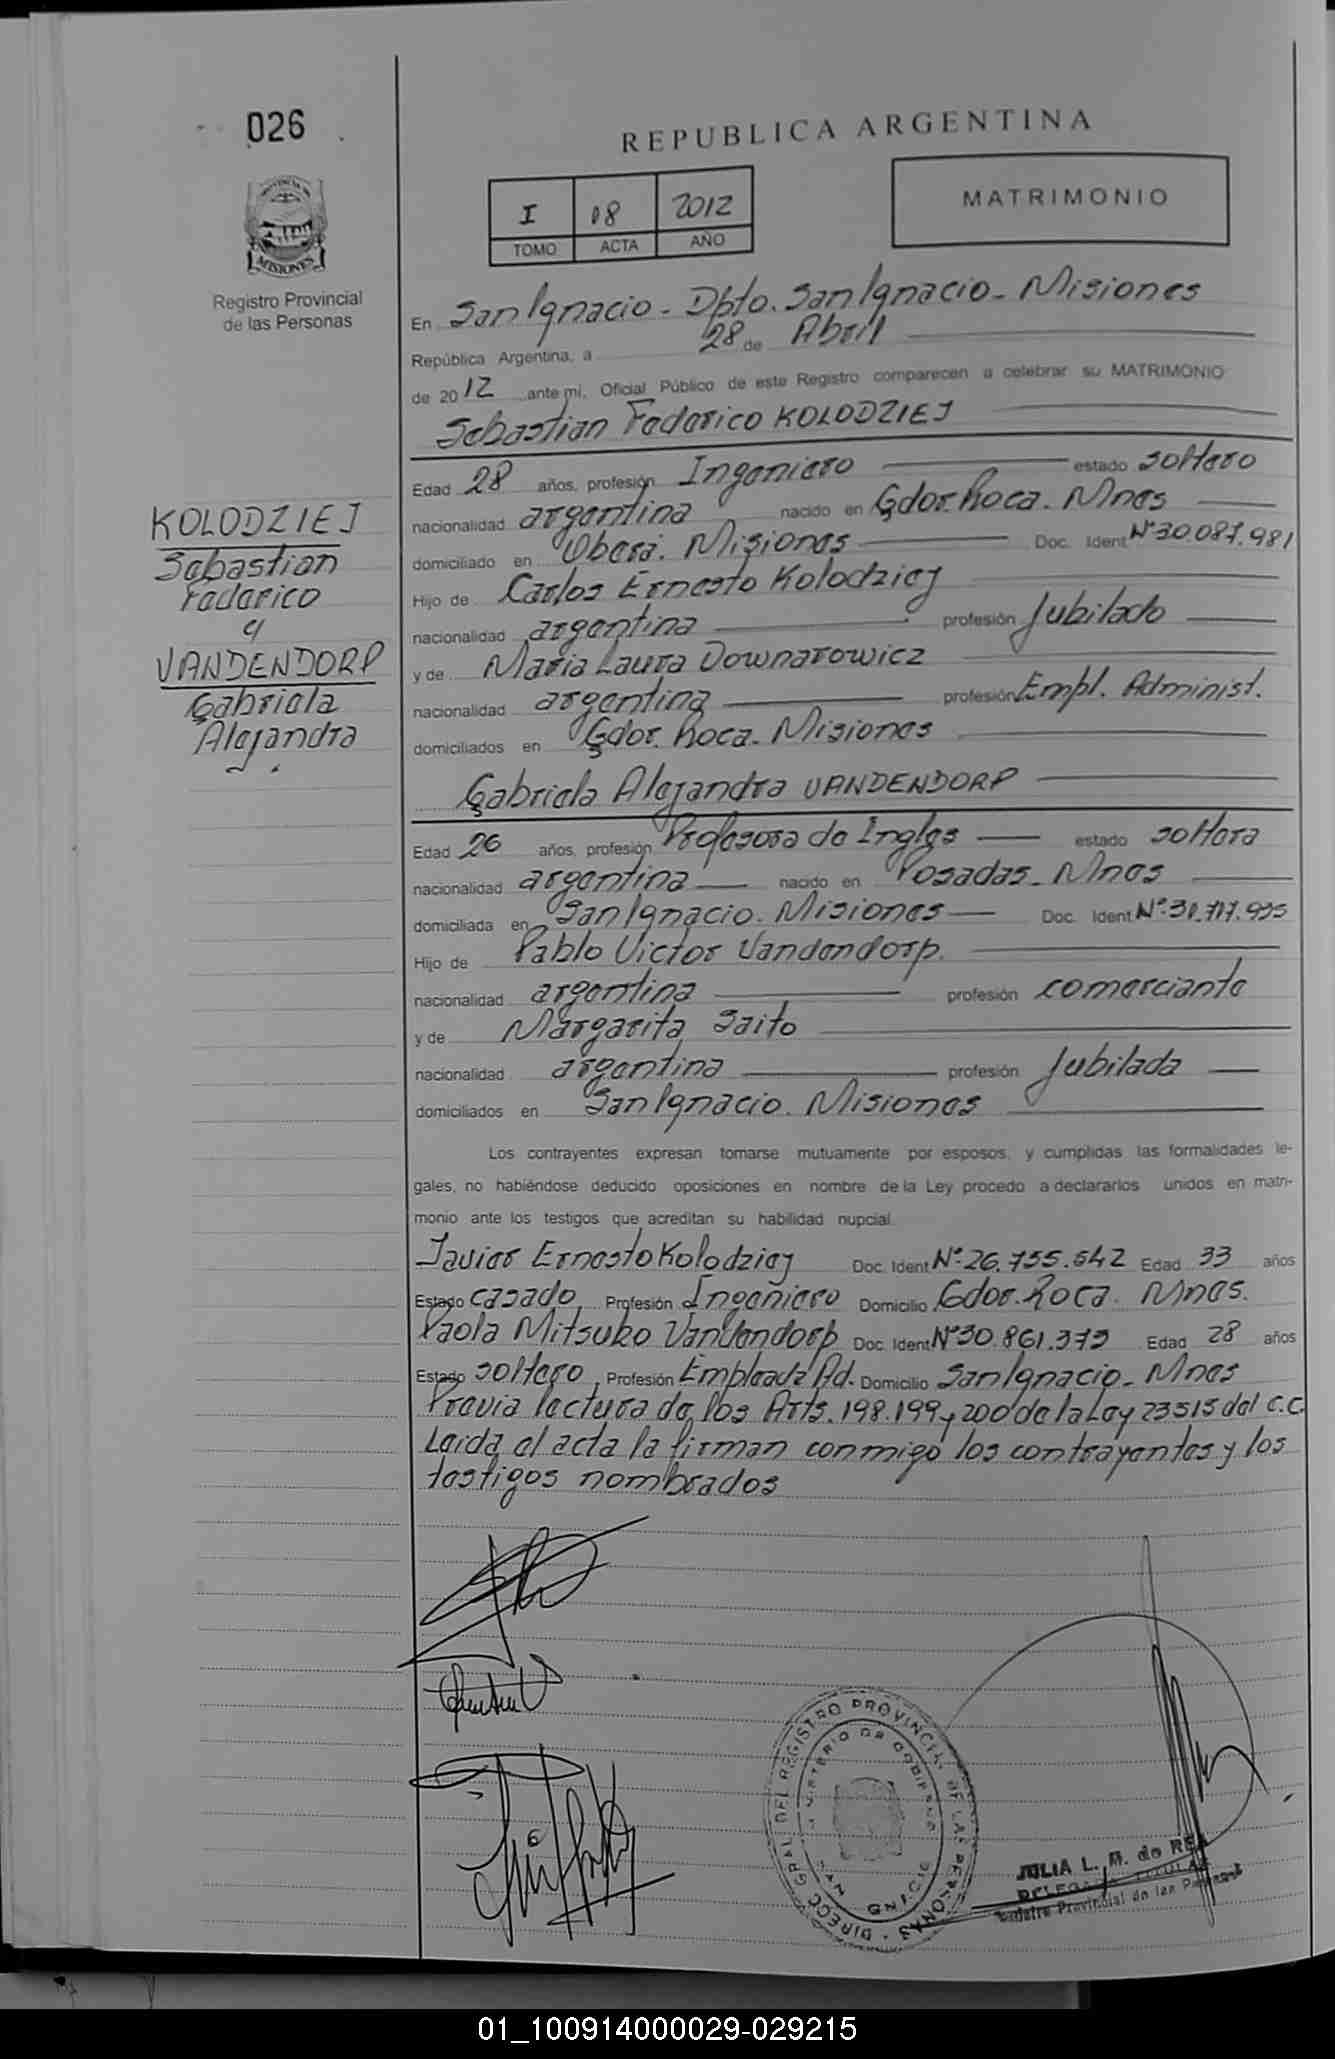 026
REPUBLICA ARGENTINA
I 08 2012
TOMO ACTA AÑO
MATRIMONIO
MISIONES
Registro Provincial
de las Personas
En San Ignacio - Dpto. San Ignacio - Misiones
República Argentina, a 28 de Abril
de 2012 ante mí, Oficial Público de este Registro comparecen a celebrar su MATRIMONIO
Sebastian Federico KOLODZIEJ
Edad 28 años, profesión Ingeniero estado soltero
nacionalidad argentina nacido en Gdor. Roca. Mnes
domiciliado en Oberá. Misiones Doc. Ident Nº 30.087.981
Hijo de Carlos Ernesto Kolodziej
nacionalidad argentina profesión Jubilado
y de Maria Laura Downarowicz
nacionalidad argentina profesión Empl. Administ.
domiciliados en Gdor. Roca - Misiones
KOLODZIEJ
Sebastian
Federico
y
VANDENDORP
Gabriela
Alejandra
Gabriela Alejandra VANDENDORP
Edad 26 años, profesión Profesora de Ingles estado soltera
nacionalidad argentina nacido en Posadas - Mnes
domiciliada en San Ignacio. Misiones Doc. Ident Nº
Hijo de Pablo Victor Vandendorp.
nacionalidad argentina profesión comerciante
y de Margarita Saito
nacionalidad argentina profesión Jubilada
domiciliados en San Ignacio. Misiones
Los contrayentes expresan tomarse mutuamente por esposos, y cumplidas las formalidades le-
gales, no habiéndose deducido oposiciones en nombre de la Ley procedo a declararlos unidos en matri-
monio ante los testigos que acreditan su habilidad nupcial.
Javier Ernesto Kolodziej Doc. Ident Nº 26.755.642 Edad 33 años
Estado casado Profesión Ingeniero Domicilio Gdor. Roca. Mnes.
Paola Mitsuko Vandendorp Doc. Ident Nº 30.861.373 Edad 28 años
Estado soltero, Profesión Empleada Ad. Domicilio San Ignacio - Mnes
Previa lectura de los Arts. 198.199 y 200 de la Ley 23515 del C.C.
Leida el acta la firman conmigo los contrayentes y los
testigos nombrados
DIRECC GRAL DEL REGISTRO PROVINCIAL DE LAS PERSONAS
MINISTERIO DE GOBIERNO
SAN IGNACIO
JULIA L. M. de
DELEGADA TITULAR
Registro Provincial de las Personas
01_100914000029-029215